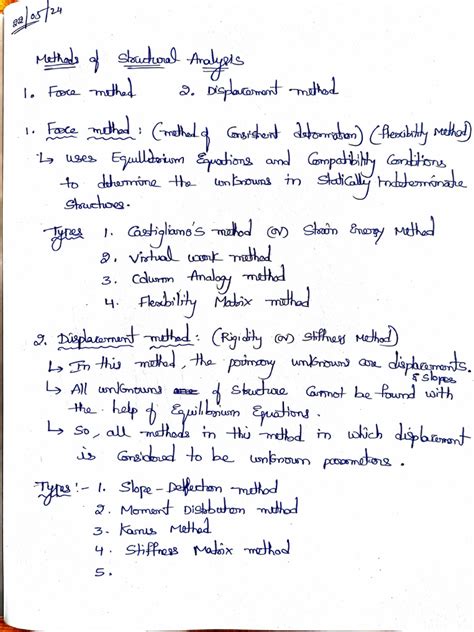 22/05/24
Methods of Structural Analysis
1. Force method 2. Displacement method
1. Force method : (-method of Consistent deformation) (-flexibility Method)
↳ uses Equilibrium Equations and Compatibility Conditions
to determine the unknowns in Statically Indeterminate
Structures.
Types 1. Castigliano's method (or) Strain Energy Method
2. Virtual work method
3. Column Analogy method
4. Flexibility Matrix method
2. Displacement method : (Rigidity (or) Stiffness Method)
↳ In this method, the primary unknowns are displacements.
& Slopes
↳ All unknowns of Structure Cannot be found with
the help of Equilibrium Equations.
↳ So, all methods in this method in which displacement
is Considered to be unknown parameters.
Types :- 1. Slope - Deflection method
2. Moment Distribution method
3. Kanis Method
4. Stiffness Matrix method
5.